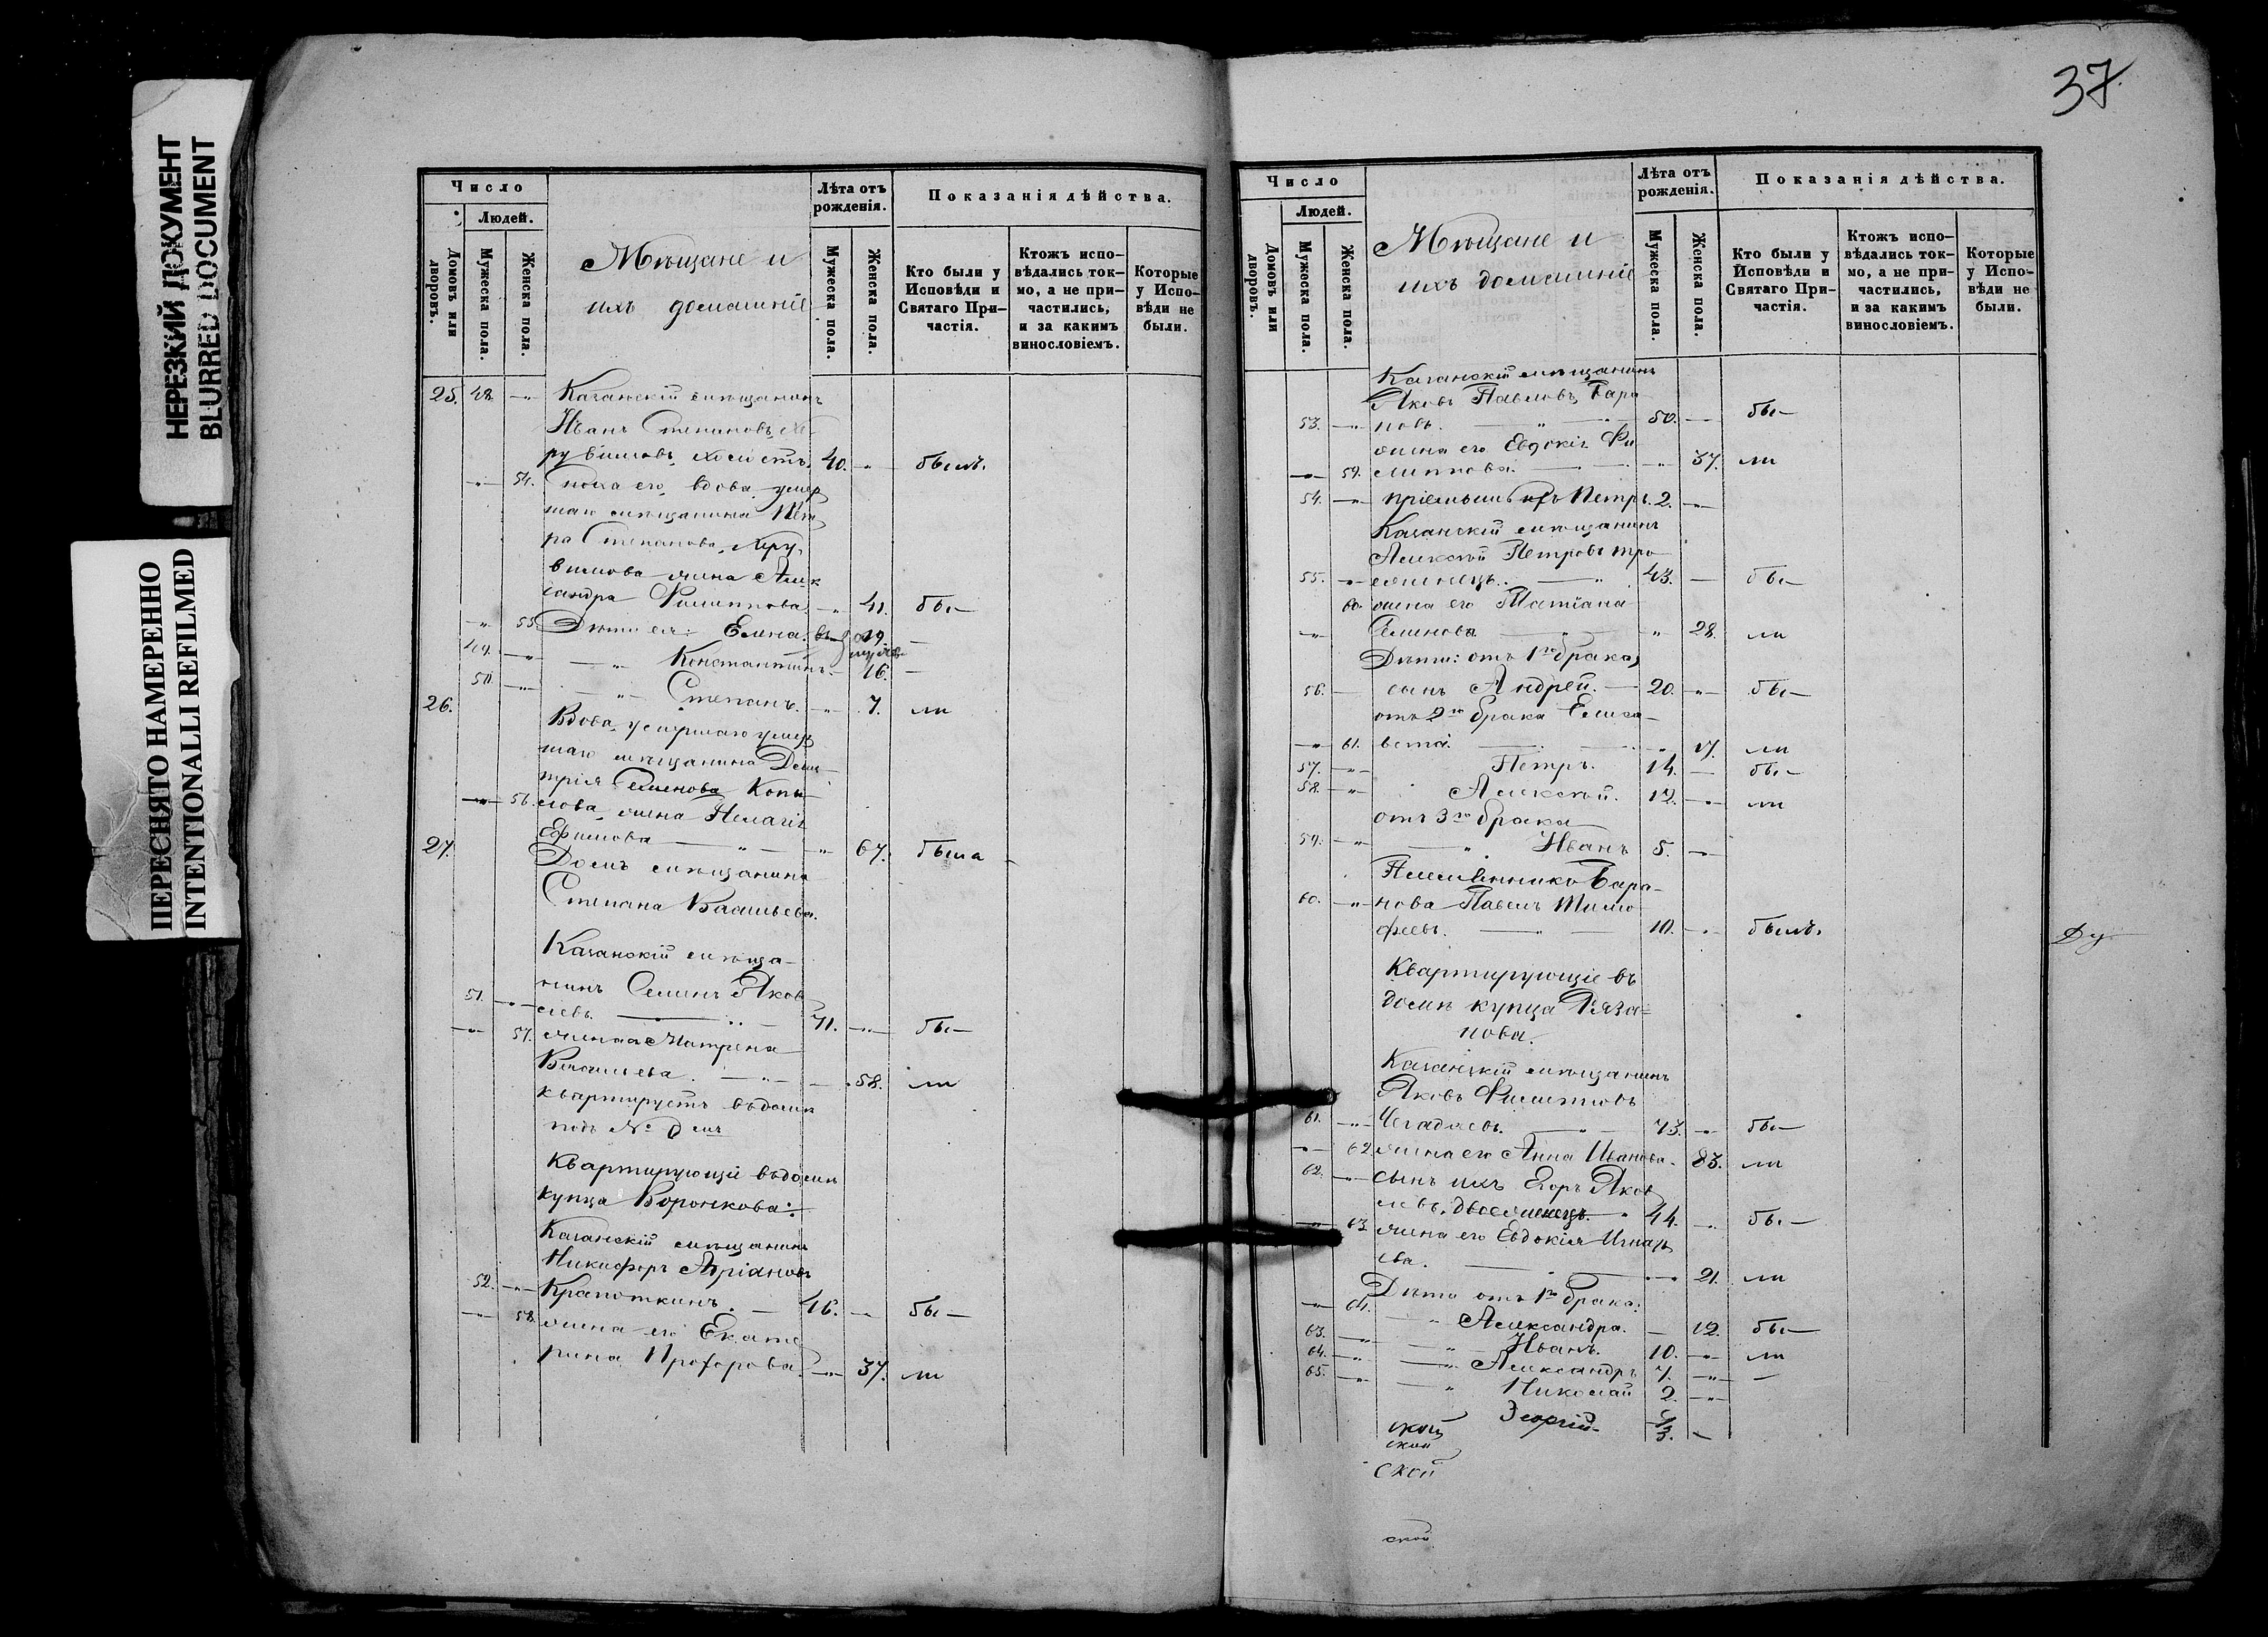 НЕРЕЗКИЙ ДОКУМЕНТ
BLURRED DOCUMENT
ПЕРЕСНЯТО НАМЕРЕННО
INTENTIONALLI REFILMED
Число
Людей.
Домовъ или дворовъ.
Мужеска пола.
Женска пола.
Мѣщане и
ихъ домашніе
Лѣта отъ рожденія.
Мужеска пола.
Женска пола.
Показанія дѣйства.
Кто были у Исповѣди и Святаго При-частія.
Ктожъ испо-вѣдались ток-мо, а не при-частились, и за какимъ винословіемъ.
Которые у Испо-вѣди не были.
25. 48. Казанскій мѣщанинъ
Иванъ Степановъ Хе-
рувимовъ, холостъ, 40. былъ.
54. Сноха его, вдова умер
шаго мѣщанина Пет
ра Степанова Херу
вимова жена Алек
сандра Филиппова 41. бы—
55. Дѣти ея: Елена. 19.
49. Константинъ. 16.
50. Степанъ. 7. ли
26. Вдова, умершаго
шаго мѣщанина Дми
трія Семенова Копы
56. лова, жена Пелагія
Ефимова 67. была
27. Домъ мѣщанина
Степана Васильева.
Казанскій мѣща-
нинъ Семенъ Яков
51. левъ 71. бы—
57. жена Матрена
Васильева. 58. ли
квартируетъ въ домѣ
подъ №
Квартирующіе въ домѣ
купца Воронкова:
Казанскій мѣщанинъ
Никифоръ Адріановъ
52. Крапоткинъ. 46. бы—
58. жена его Екате
рина Прохорова. 37. ли
37.
Число
Людей.
Домовъ или дворовъ.
Мужеска пола.
Женска пола.
Мѣщане и
ихъ домашніе
Лѣта отъ рожденія.
Мужеска пола.
Женска пола.
Показанія дѣйства.
Кто были у Исповѣди и Святаго При-частія.
Ктожъ испо-вѣдались ток-мо, а не при-частились, и за какимъ винословіемъ.
Которые у Испо-вѣди не были.
Казанскій мѣщанинъ
Яковъ Павловъ Бара
53. новъ. 50. бы—
жена его Евдокія Фи
59. липпова. 37. ли
54. пріемышъ ихъ Петръ. 2.
Казанскій мѣщанинъ
Алексѣй Петровъ тро
55. еженецъ. 43. бы—
60. жена его Татіана
Семенова 28. ли
Дѣти: отъ 1го брака,
56. сынъ Андрей. 20. бы—
отъ 2го брака Елиза-
61. вета. 17. ли
57. Петръ. 14. бы—
58. Алексѣй. 12. ли
отъ 3го брака
59. Иванъ 5.
Племянникъ Бара-
60. нова Павелъ Тимо
феевъ. 10. былъ.
Квартирующіе въ
домѣ купца Ряза-
нова.
Казанскій мѣщанинъ
Яковъ Филипповъ
61. Чегадаевъ. 73. бы—
62. жена его Анна Иванова. 83. ли
62. сынъ ихъ Егоръ Яков
левъ, двоеженецъ. 44. бы—
63. жена его Евдокія Игнать
ева. 21. ли
Дѣти отъ 1го брака:
64. Александра. 12. бы—
63. Иванъ. 10. ли
64. Александръ 7.
65. Николай 2.
Георгій
ской
ской
ской
ской